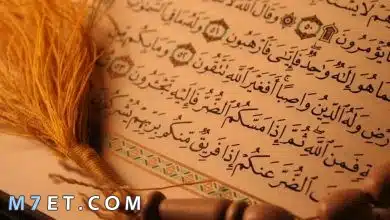 يُؤْمَرُونَ ۩ ٥٠ وَقَالَ ٱللَّهُ لَا
مَا هُوَ إِلَٰهٌ وَٰحِدٌ فَإِيَّٰىَ فَٱرْهَبُونِ ٥١ وَلَهُۥ مَا فِى
رْضِ وَلَهُ ٱلدِّينُ وَاصِبًا أَفَغَيْرَ ٱللَّهِ تَتَّقُونَ ٥٢ وَمَا بِكُم
فَمِنَ ٱللَّهِ ثُمَّ إِذَا مَسَّكُمُ ٱلضُّرُّ فَإِلَيْهِ تَجْـَٔرُونَ ٥٣
ٱلضُّرَّ عَنكُمْ إِذَا فَرِيقٌ مِّنكُم بِرَبِّهِمْ يُشْرِكُونَ
M7ET.COM